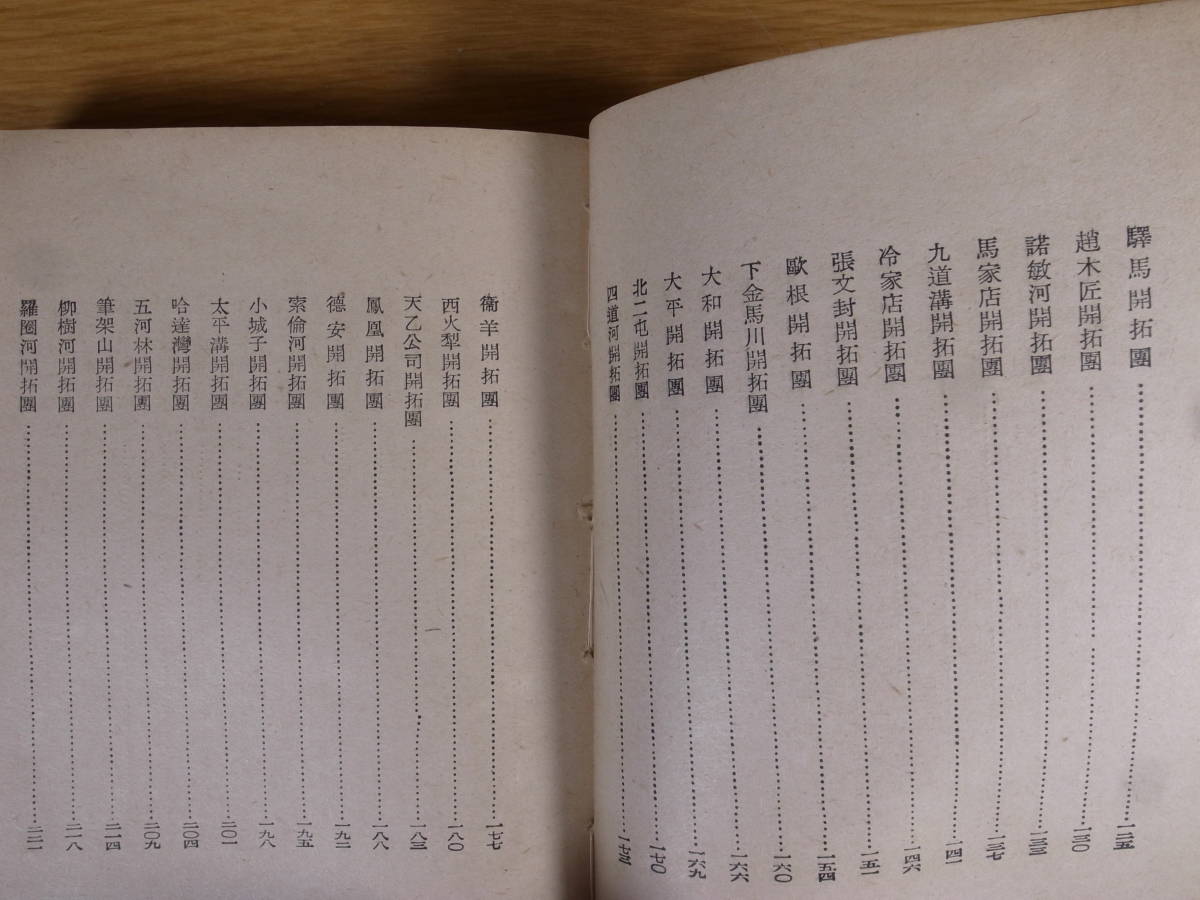 驛馬開拓團……一二五
趙木匠開拓團……一三〇
諾敏河開拓團……一三三
馬家店開拓團……一三七
九道溝開拓團……一四一
冷家店開拓團……一四六
張文封開拓團……一五一
歐根開拓團……一五四
下金馬川開拓團……一六〇
大和開拓團……一六六
大平開拓團……一六九
北二屯開拓團……一七〇
四道河開拓團……一七三
衞羊開拓團……一七七
西火犁開拓團……一八〇
天乙公司開拓團……一八三
鳳凰開拓團……一八八
德安開拓團……一九二
索倫河開拓團……一九五
小城子開拓團……一九八
太平溝開拓團……二〇一
哈達灣開拓團……二〇四
五河林開拓團……二〇九
筆架山開拓團……二一四
柳樹河開拓團……二一八
羅圈河開拓團……二二一